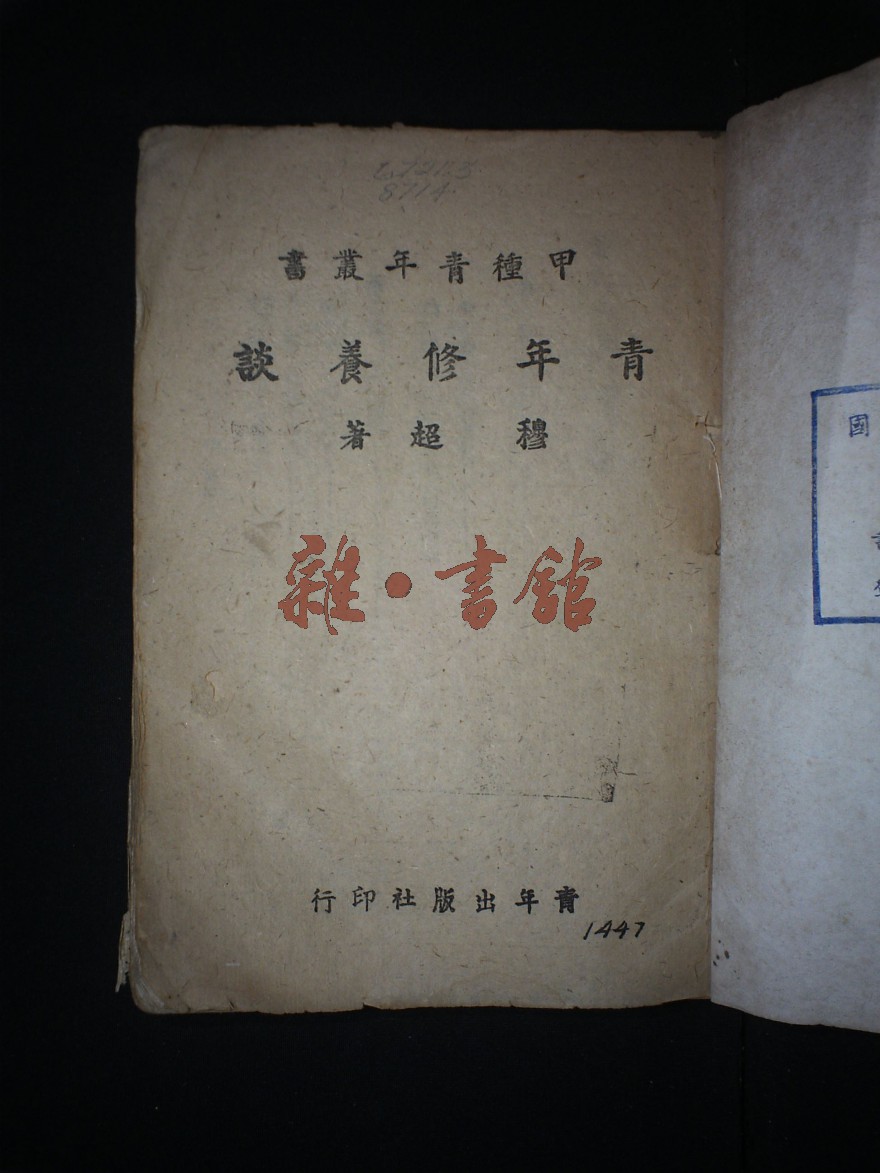 8714
甲種青年叢書
青年修養談
穆超著
雜·書館
青年出版社印行
1447
國